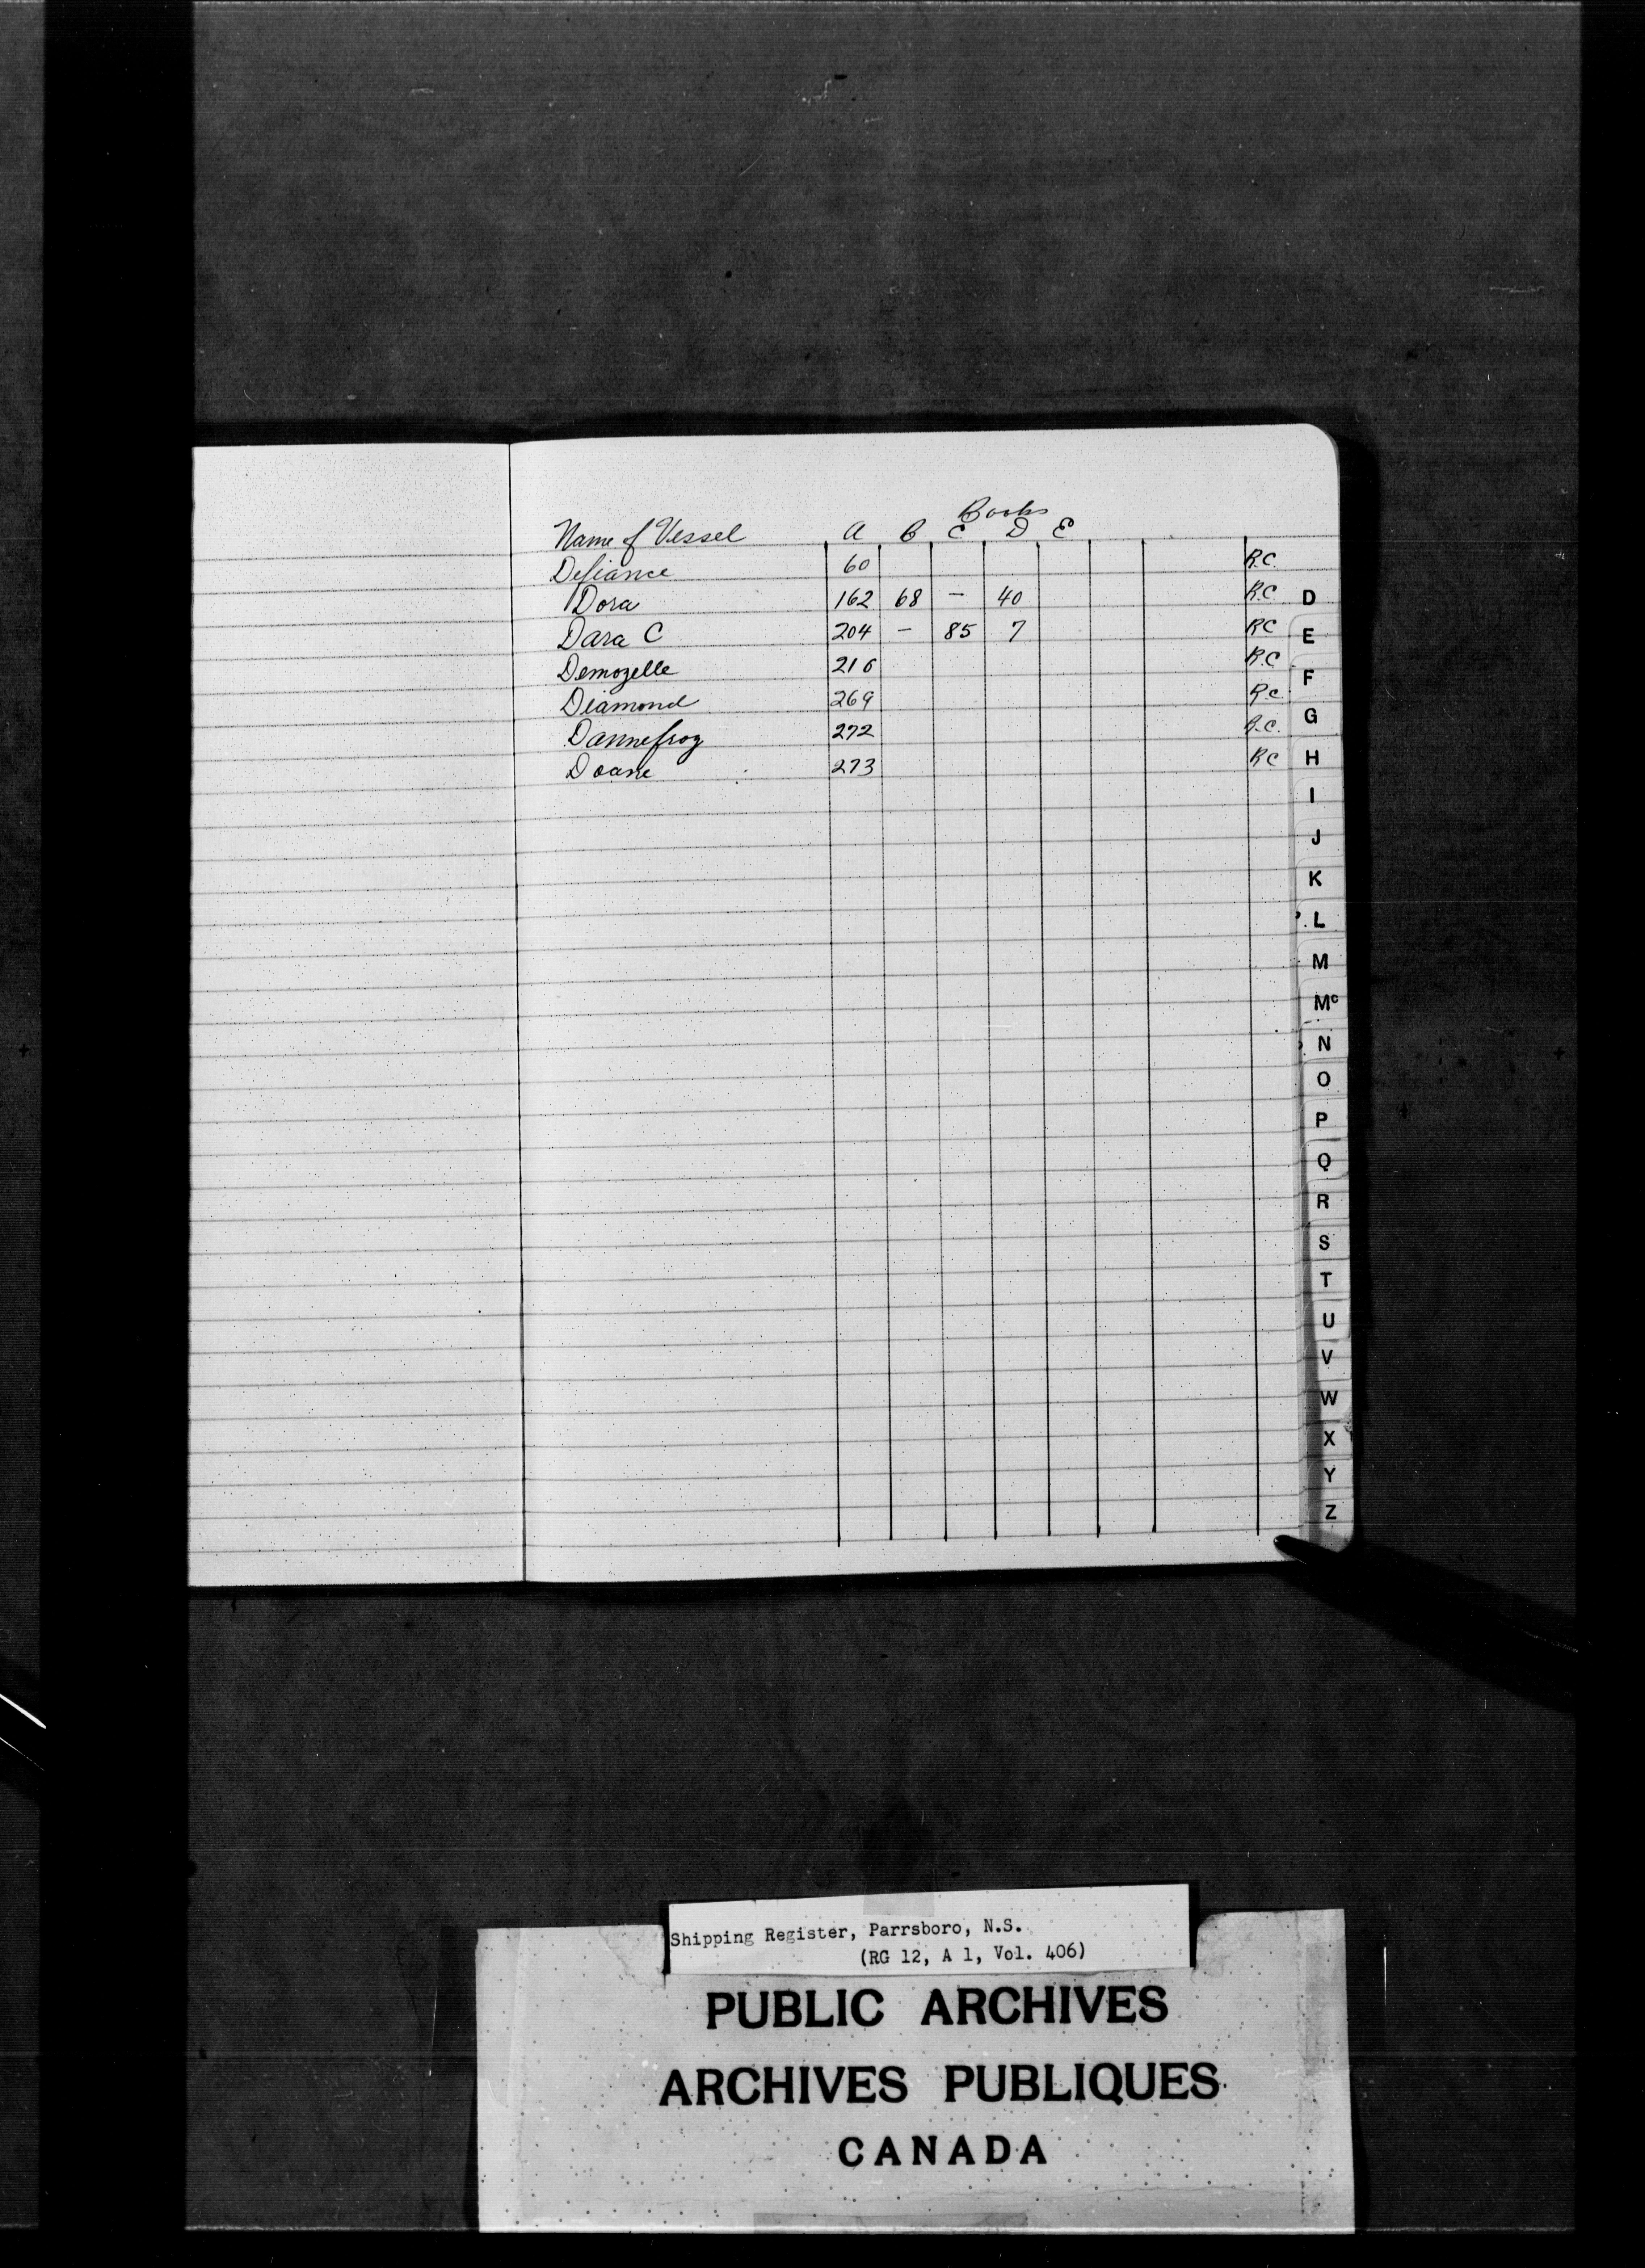 Books
Name of Vessel A B C D E
Defiance 60 R.C.
Dora 162 68 — 40 R.C
Dara C 204 — 85 7 RC
Demozelle 216 R.C
Diamond 269 R.C.
Dannefrog 272 R.C.
Doane 273 RC
D
E
F
G
H
I
J
K
L
M
Mc
N
O
P
Q
R
S
T
U
V
W
X
Y
Z
Shipping Register, Parrsboro, N.S.
(RG 12, A 1, Vol. 406)
PUBLIC ARCHIVES
ARCHIVES PUBLIQUES
CANADA